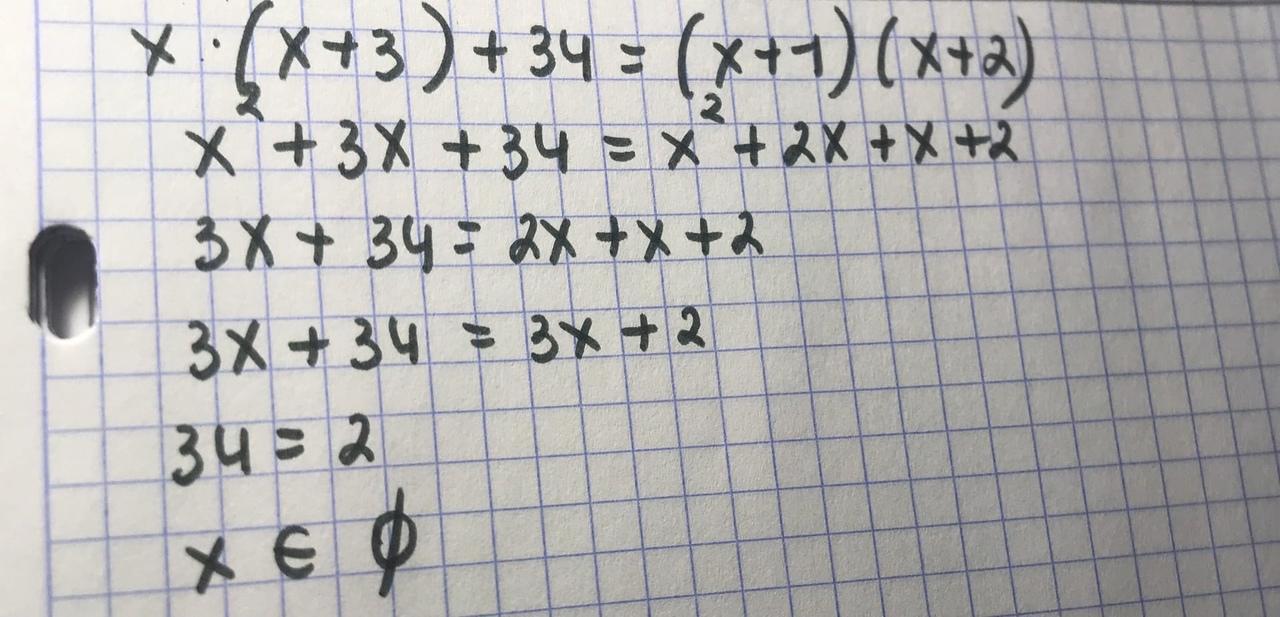 x · (x+3) + 34 = (x+1)(x+2)
x² + 3x + 34 = x² + 2x + x + 2
3x + 34 = 2x + x + 2
3x + 34 = 3x + 2
34 = 2
x ∈ ϕ